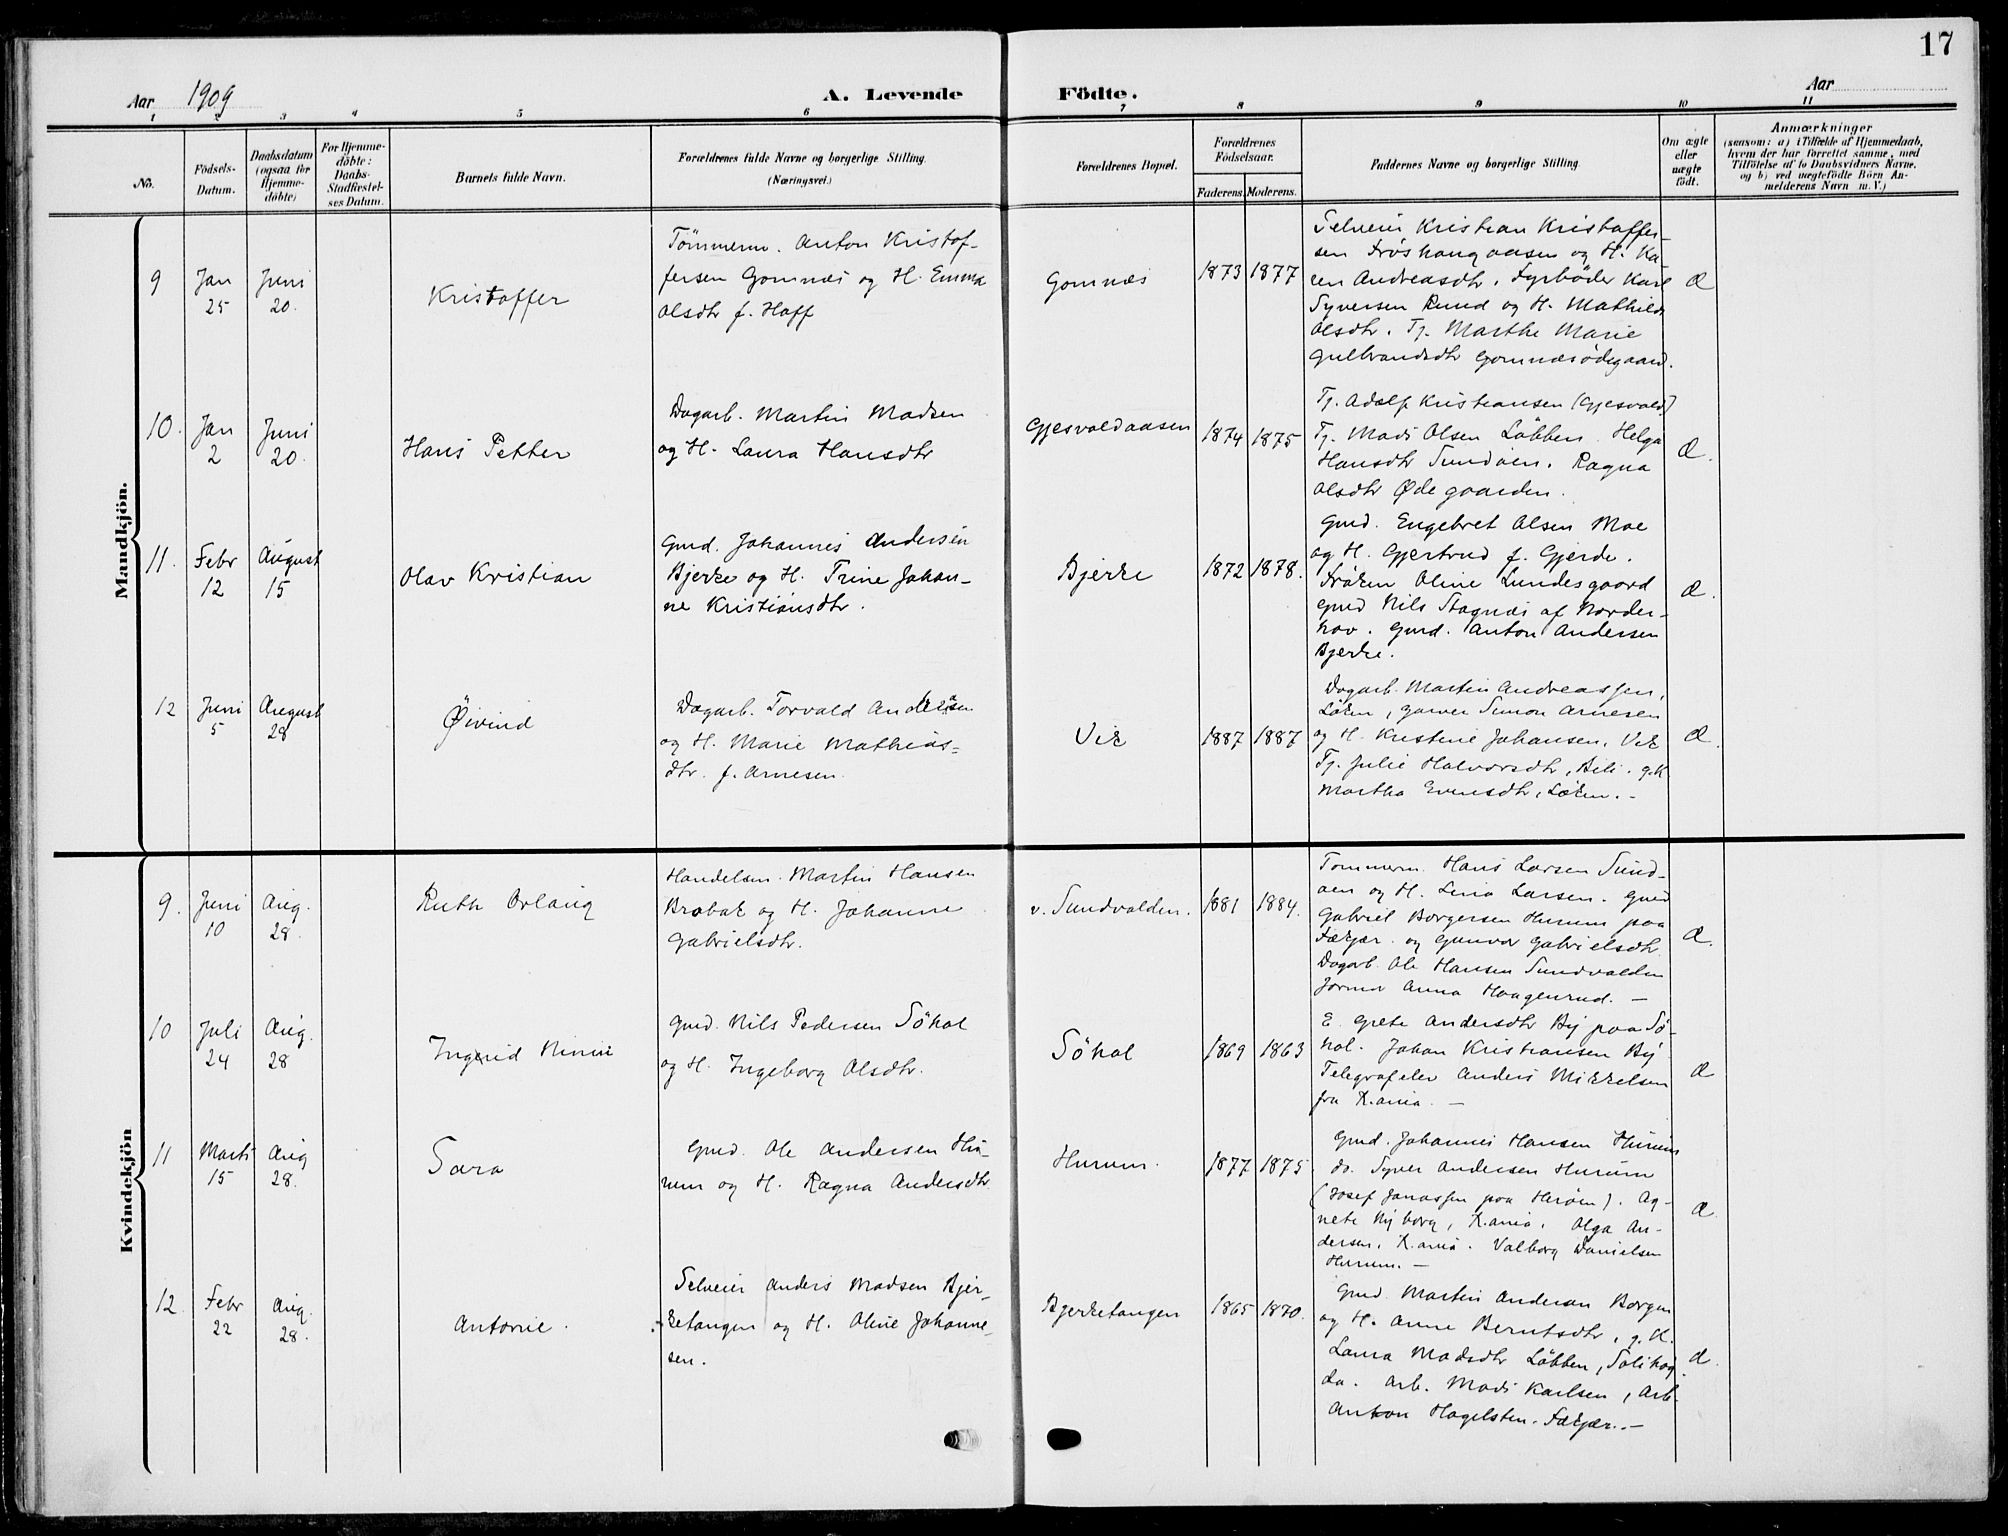 17
Aar 1909
A. Levende Födte.
Aar
1 2 3 4 5 6 7 8 9 10 11
No.
Födsels-
Datum.
Daabsdatum
(ogsaa for
Hjemme-
döbte)
For Hjemme-
döbte:
Daabs-
Stadfæstel-
ses Datum.
Barnets fulde Navn.
Forældrenes fulde Navne og borgerlige Stilling.
(Næringsvei.)
Forældrenes Bopæl.
Forældrenes
Födselsaar.
Faderens. Moderens.
Faddernes Navne og borgerlige Stilling.
Om ægte
eller
uægte
födt.
Anmærkninger
(saasom: a) i Tilfælde af Hjemmedaab,
hvem der har forrettet samme, med
Tilföielse af to Daabsvidners Navne,
og b) ved uægtefödte Börn An-
melderens Navn m. V.)
Mandkjön.
9
Jan
25
Juni
20.
Kristoffer
Tömmerm. Anton Kristof-
fersen Gomnæs og H. Emma
Olsdtr f. Hoff
Gomnæs
1873 1877
Selveier Kristian Kristoffer-
sen Fröshaugaasen og H. Ka-
ren Andreasdtr. Fyrböder Karl
Syversen Rund og H. Mathilde
Olsdtr. Tj. Marthe Marie
Gulbrandsdtr Gomnæsödegaard.
Æ
10.
Jan
2
Juni
20.
Hans Petter
Dagarb. Martin Madsen
og H. Laura Hansdtr
Gjesvoldaasen
1874 1875
Tj. Adolf Kristiansen (Gjesvold)
Tj. Mads Olsen Löbben. Helga
Hansdtr Sundöen. Ragna
Olsdtr Ødegaarden.
Æ.
11.
Febr
12
August
15
Olav Kristian
Gmd. Johannes Andersen
Bjerke og H. Trine Johan-
ne Kristiansdtr.
Bjerke
1872 1878.
Gmd. Engebret Olsen Moe
og H. Gjertrud f. Gjerde.
Fröken Oline Lundesgaard
Gmd Nils Stagnæs af Norder-
hov. Gmd. Anton Andersen
Bjerke.
Æ.
12
Juni
5
August
28
Øivind
Dagarb. Torvald Andersen
og H. Marie Mathias-
dtr. f. Arnesen.
Vik
1887 1887
Dagarb. Martin Andreassen,
Løken, garver Simon Arnesen
og H. Kristine Johansen, Vik
Tj. Julie Halvorsdtr, Bili. g.K
Martha Evensdtr, Løken.-
Æ.
Kvindekjön
9.
Juni
10
Aug.
28.
Ruth Orlaug
Handelsm. Martin Hansen
Brobak og H. Johanne
Gabrielsdtr.
v. Sundvolden.
1881 1884.
Tommerm. Hans Larsen Sund-
öen og H. Lina Larsen. Gmd
Gabriel Borgersen Hurum paa
Fækjær. og Gunvor Gabrielsdtr.
Dagarb. Ole Hansen Sundvolden
Jormor Anna Haagenrud. –
Æ.
10
Juli
24
Aug.
28
Ingrid
Gmd. Nils Pedersen Söhol
og H. Ingeborg Olsdtr.
Söhol
1869 1863
E. Grete Andersdtr By paa Sö-
hol. Johan Kristiansen By
Telegrafelev Anders Mikkelsen
fra K.ania. –
Æ
11
Marts
15
Aug
28.
Sara
Gmd. Ole Andersen Hu-
rum og H. Ragna Andersdtr
Hurum.
1877 1875
Gmd. Johannes Hansen Hurum
do. Syver Andersen Hurum
(Josef Jonassen paa Heröen). Ag-
nete Nyborg, K.ania. Olga An-
dersen, K.ania. Valborg Danielsen
Hurum. –
Æ.
12.
Febr
22
Aug.
28.
Antonie.
Selveier Anders Madsen Bjer-
ketangen og H. Oline Johanne-
sen.
Bjerketangen
1865 1870.
Gmd. Martin Andersen Borgen
og H. Anne Berntsdtr, g.K.
Laura Madsdtr Löbben, Solihög-
da. Arb. Mads Karlsen, Arb.
Anton Hagelsten. Fækjær. –
Æ.